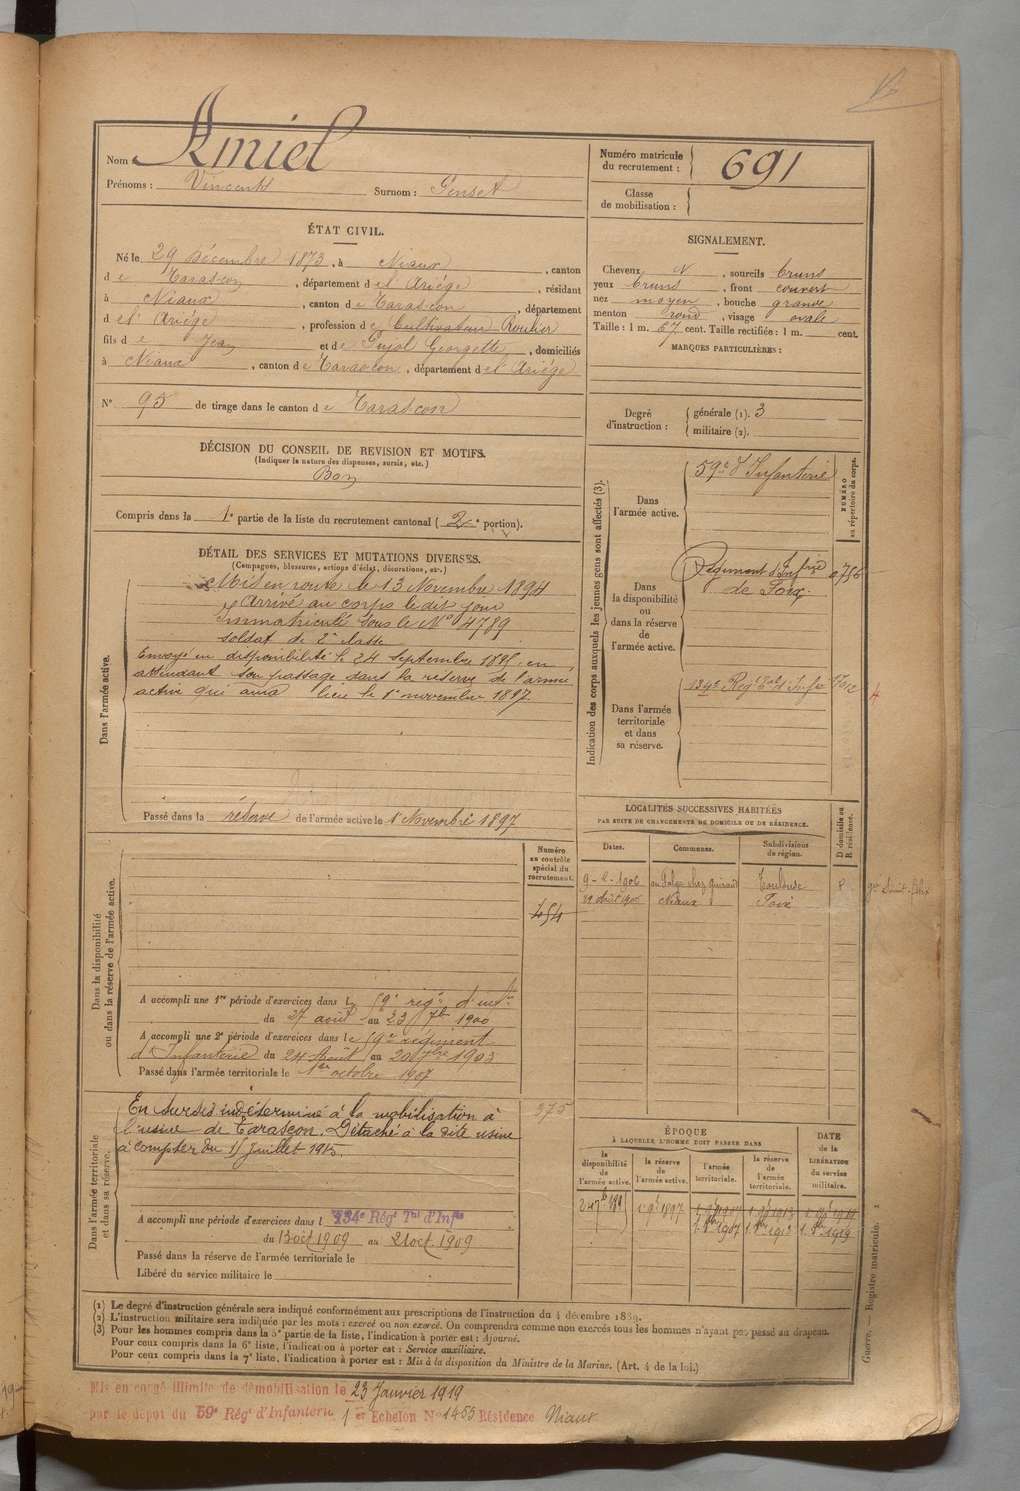 Nom Amiel
Prénoms : Vincent Surnom :
Numéro matricule du recrutement : 691
Classe de mobilisation :
ÉTAT CIVIL.
Né le 29 Décembre 1873, à Niaux, canton
de Tarascon, département de l'Ariége, résidant
à Niaux, canton de Tarascon, département
d el' Ariége, profession de Cultivateur Roulier
fils de Jean et de Pujol Georgette, domiciliés
à Niaux, canton de Tarascon, département d el' Ariége
N° 95 de tirage dans le canton de Tarascon
DÉCISION DU CONSEIL DE REVISION ET MOTIFS.
(Indiquer la nature des dispenses, sursis, etc.)
Bon
Compris dans la 1e partie de la liste du recrutement cantonal (2e portion).
SIGNALEMENT.
Cheveux N, sourcils bruns
yeux bruns, front couvert
nez moyen, bouche grande
menton rond, visage ovale
Taille : 1 m. 67 cent. Taille rectifiée : 1 m. cent.
MARQUES PARTICULIÈRES :
Degré d'instruction :
générale (1). 3
militaire (2).
Indication des corps auxquels les jeunes gens sont affectés (3).
NUMÉRO au répertoire du corps.
Dans l'armée active.
59e d'Infanterie
Dans la disponibilité ou dans la réserve de l'armée active.
Régiment d'Infrie de Foix
Dans l'armée territoriale et dans sa réserve.
134e Regt Tal d'Infie
DÉTAIL DES SERVICES ET MUTATIONS DIVERSES.
(Campagnes, blessures, actions d'éclat, décorations, etc.)
Dans l'armée active.
Mis en route le 13 Novembre 1894
Arrivé au corps le dit jour
Immatriculé sous le N° 4789
soldat de 2e classe
Envoyé en disponibilité le 24 Septembre 1895 en
attendant son passage dans la réserve de l'armée
active qui aura lieu le 1e novembre 1897.
Passé dans la réserve de l'armée active le 1e Novembre 1897
Dans la disponibilité ou dans la réserve de l'armée active.
Numéro au contrôle spécial du recrutement.
454
A accompli une 1re période d'exercices dans l 59e rég. d'inf.
du 27 août au 23 7bre 1900
A accompli une 2e période d'exercices dans le 59e régiment
d'Infanterie du 24 Août au 20 7bre 1903
Passé dans l'armée territoriale le 1er octobre 1907
LOCALITÉS SUCCESSIVES HABITÉES
PAR SUITE DE CHANGEMENTS DE DOMICILE OU DE RÉSIDENCE.
Dates. Communes. Subdivisions de région. D domicile ou R résidence.
9-2-1906 Toulouse R
29 août 1906 Niaux Foix
Dans l'armée territoriale et dans sa réserve.
En sursis indéterminé à la mobilisation à
l'usine de Tarascon. Détaché à la dite usine
à compter du 15 Juillet 1915.
375
A accompli une période d'exercices dans l 134e Régt Tal d'Infie
du 13 oct 1909 au 21 oct 1909
Passé dans la réserve de l'armée territoriale le
Libéré du service militaire le
ÉPOQUE
À LAQUELLE L'HOMME DOIT PASSER DANS
DATE de la LIBÉRATION du service militaire.
la disponibilité de l'armée active. la réserve de l'armée active. l'armée territoriale. la réserve de l'armée territoriale.
(1) Le degré d'instruction générale sera indiqué conformément aux prescriptions de l'instruction du 4 décembre 1889.
(2) L'instruction militaire sera indiquée par les mots : exercé ou non exercé. On comprendra comme non exercés tous les hommes n'ayant pas passé au drapeau.
(3) Pour les hommes compris dans la 5e partie de la liste, l'indication à porter est : Ajourné.
Pour ceux compris dans la 6e liste, l'indication à porter est : Service auxiliaire.
Pour ceux compris dans la 7e liste, l'indication à porter est : Mis à la disposition du Ministre de la Marine. (Art. 4 de la loi.)
Guerre. — Registre matricule. 1
Mis en congé illimité de démobilisation le 23 Janvier 1919
par le dépôt du 59e Régt d'Infanterie 1er Echelon N° 1455 Résidence Niaux